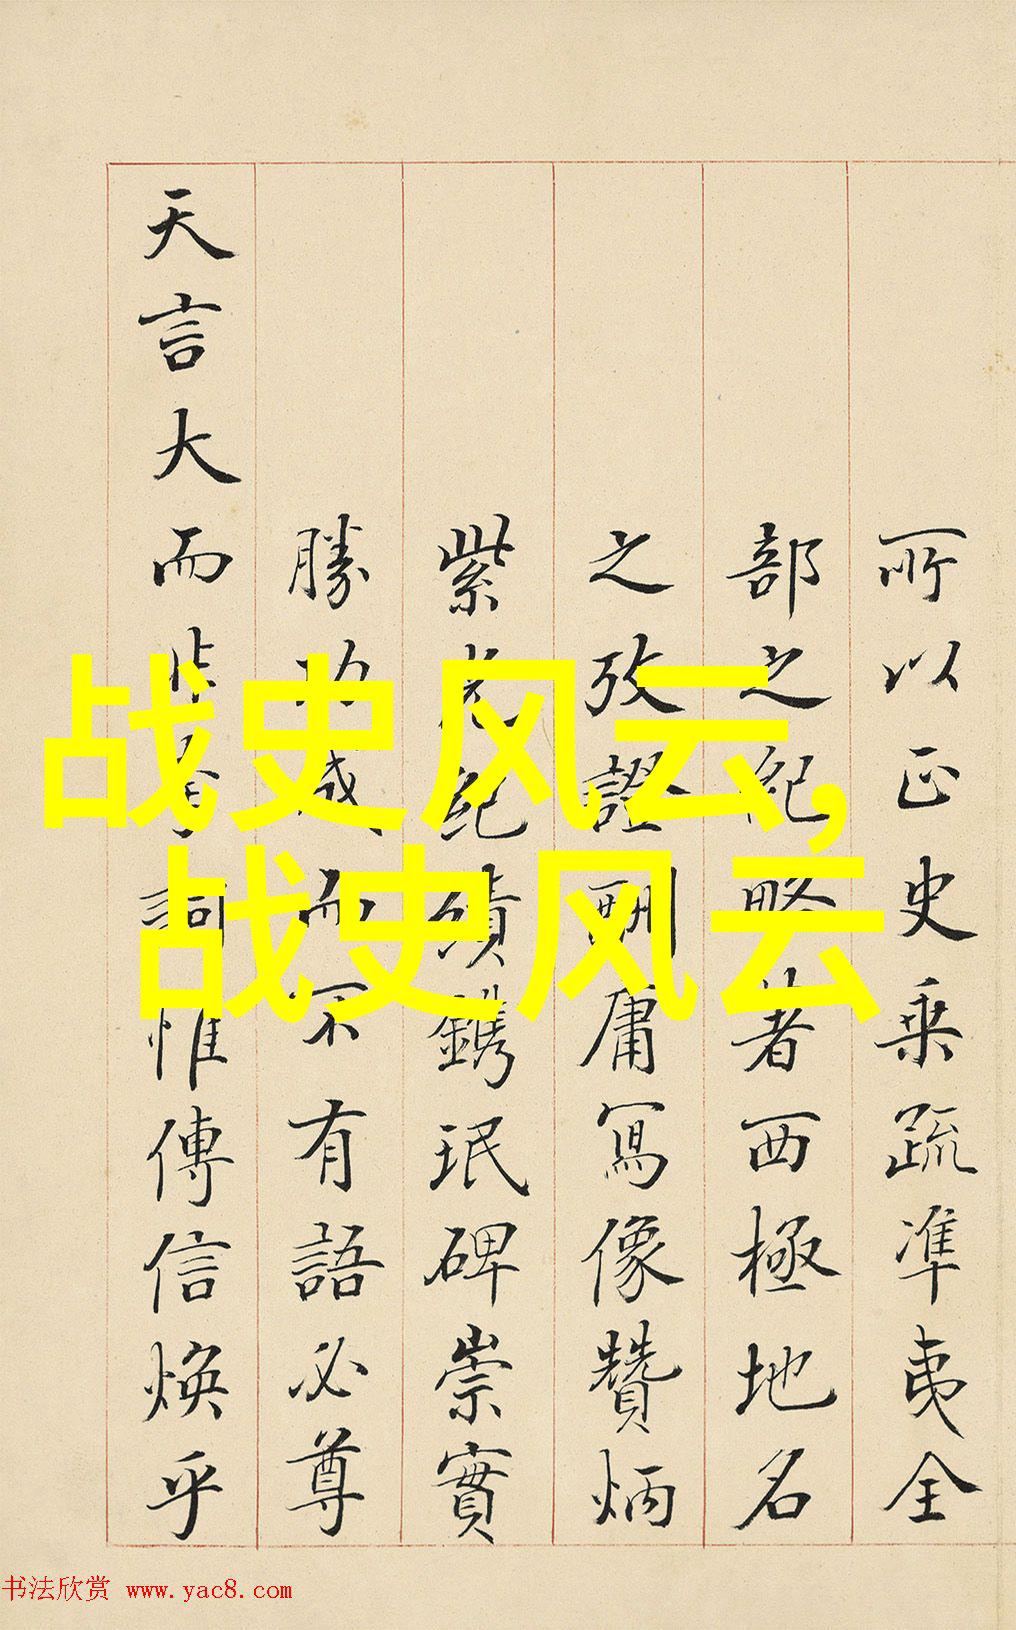 战史风云,
战史风云
所以正史乗疏凖夷全
部之紀略著西極地名
之攷證刪庸寫像贊炳
紫光紀績鐫珉碑崇實
勝功而不有語必尊
天言大而非詞惟傳信煥乎
书法欣赏 www.yac8.com